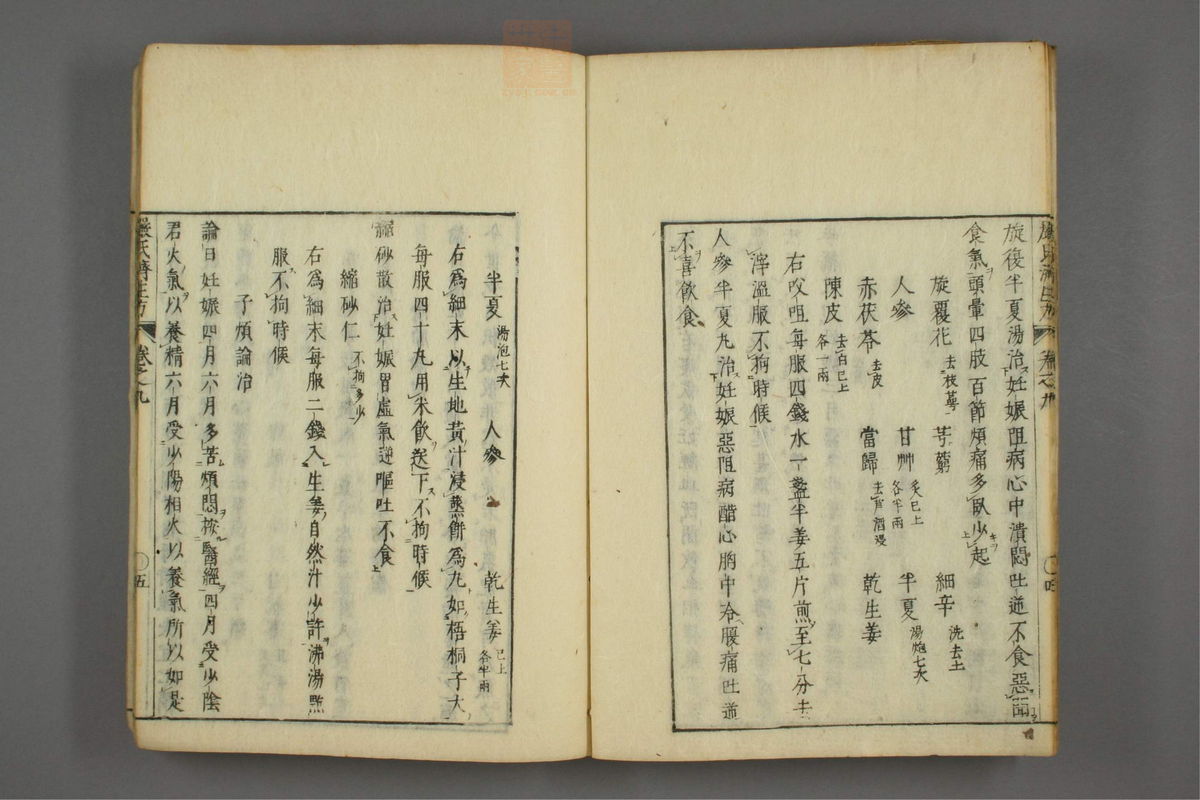 旋復半夏湯治妊娠阻病心中潰悶吐逆不食惡聞
食氣頭暈四肢百節煩痛多臥少起
旋覆花去枝萼 芎藭 細辛洗去土
人參 甘艸炙已上各半兩 半夏湯炮七次
赤茯苓去皮 當歸去蘆酒浸 乾生姜
陳皮去白已上各一兩
右㕮咀每服四錢水一盞半姜五片煎至七分去
滓溫服不拘時候
人參半夏丸治妊娠惡阻病醋心胸中冷腹痛吐逆
不喜飲食
半夏湯泡七次 人參 乾生姜已上各半兩
右爲細末以生地黃汁浸蒸餅爲丸如梧桐子大
每服四十丸用米飲送下不拘時候
縮砂散治妊娠胃虛氣逆嘔吐不食
縮砂仁不拘多少
右爲細末每服二錢入生姜自然汁少許沸湯點
服不拘時候
子煩論治
論曰妊娠四月六月多苦煩悶按醫經四月受少陰
君火氣以養精六月受少陽相火以養氣所以如是
嚴氏濟生方 卷之九 五